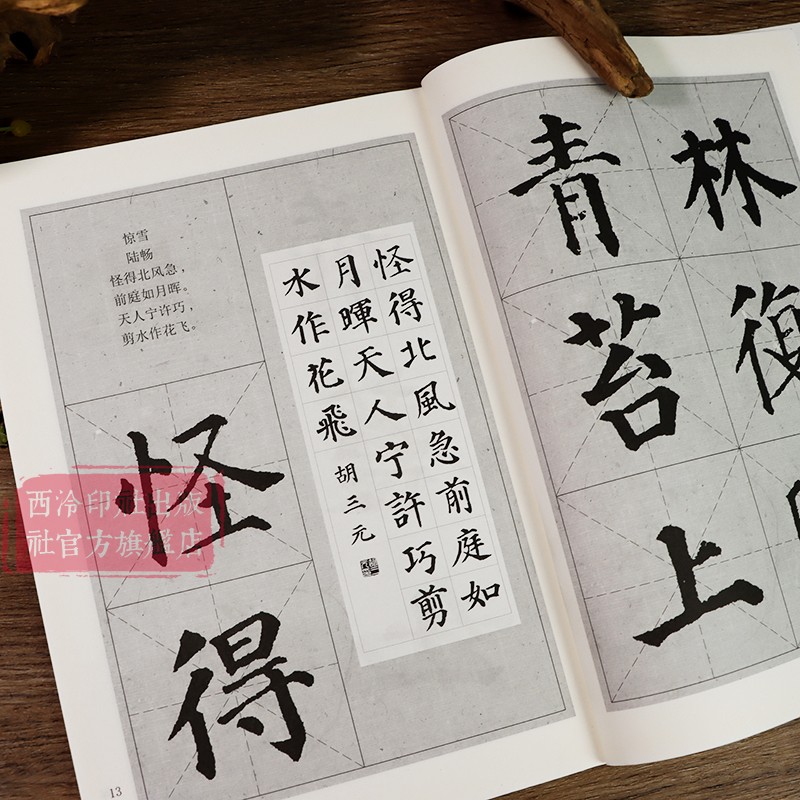 惊雪
陆畅
怪得北风急，
前庭如月晖。
天人宁许巧，
剪水作花飞。
怪得北風急前庭如
月暉天人宁許巧剪
水作花飛
胡三元
怪
得
林
復
青
苔
上
13
西泠印社出版
社官方旗舰店